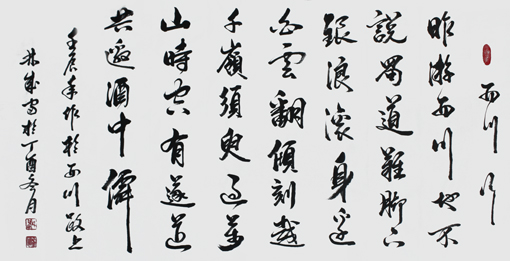 西川行
昨游西川地不
説蜀道難脚下
銀浪滚身邊
白雲翻傾刻越
千嶺須臾過萬
山時空有遂道
共邀酒中僊
壬辰年作於西川路上
林成於丁酉冬月